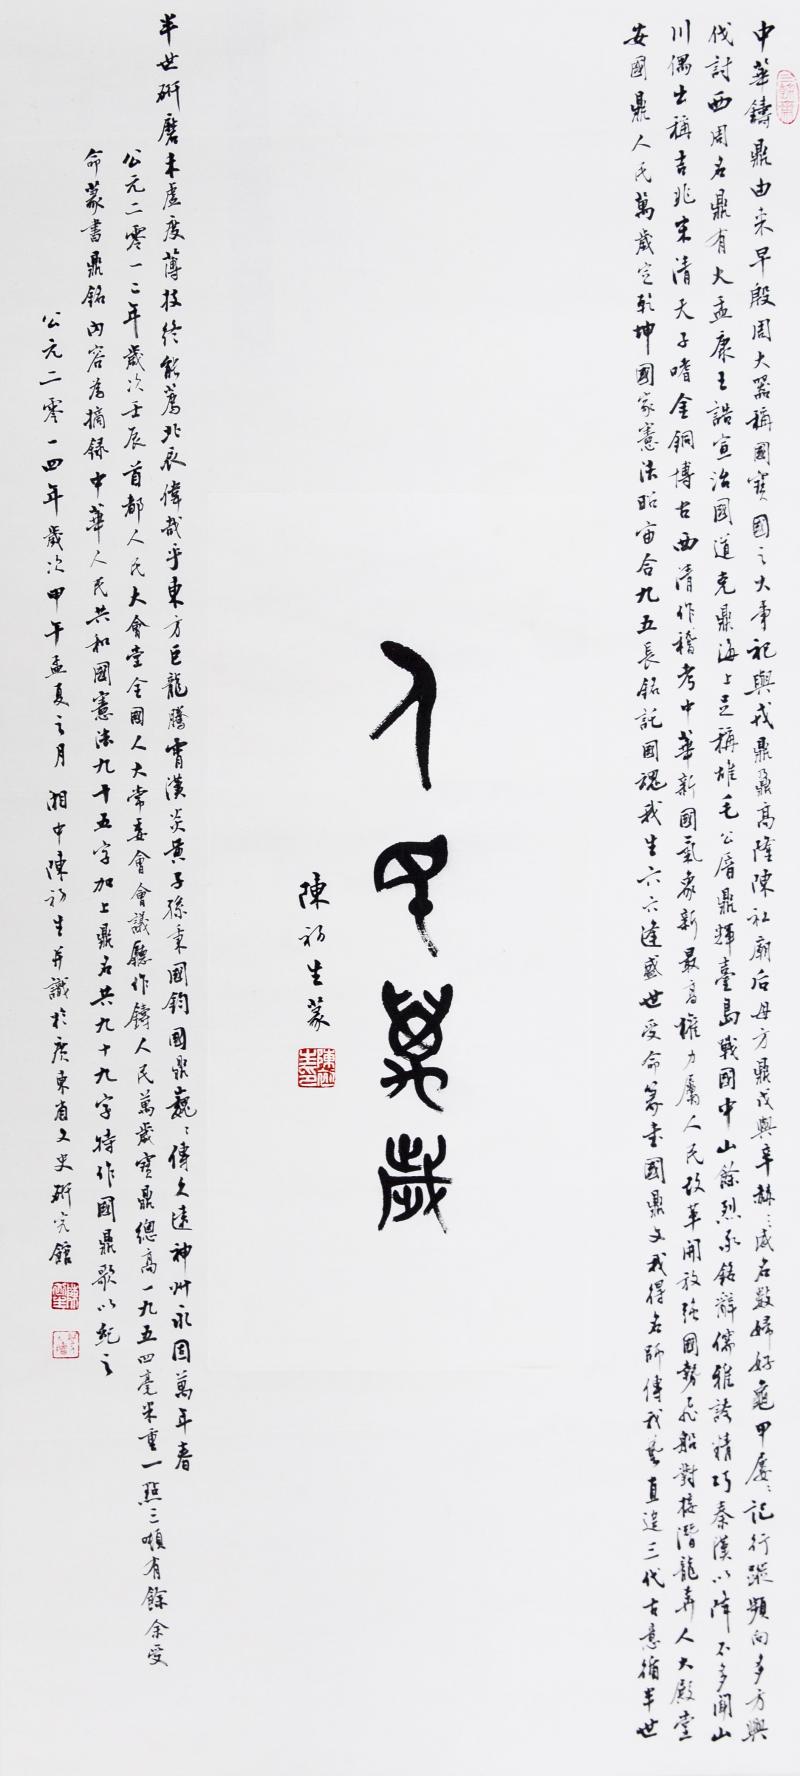 中華鑄鼎由来早殷周大器稱國寶國之大事祀與戎鼎鼐高隆陳社廟后母方鼎戊與辛赫〻威名數婦好龜甲屢〻記行蹤頻向多方興
伐討西周名鼎有大盂康王誥宣治國道克鼎海上足稱雄毛公厝鼎輝臺島戰國中山餘烈承銘辭儒雅誇精巧秦漢以降不多聞山
川偶出稱吉兆宋清天子嗜金銅博古西清作稽考中華新國氣象新最高權力屬人民改革開放強國勢飛船對接潛龍奔人大殿堂
安國鼎人民萬歲定乾坤國家憲法昭宙合九五長銘託國魂我生六六逢盛世受命篆書國鼎文我得名師傳我藝直追三代古意循半世
人民萬歲
陳初生篆
陳初生印
半世研磨未虛度薄技終能薦北辰偉哉乎東方巨龍騰霄漢炎黃子孫秉國鈞國鼎巍〻傳久遠神州永固萬年春
公元二零一二年歲次壬辰首都人民大會堂全國人大常委會會議廳作鑄人民萬歲寶鼎總高一九五四毫米重一點三噸有餘余受
命篆書鼎銘內容為摘錄中華人民共和國憲法九十五字加上鼎名共九十九字特作國鼎歌以紀之
公元二零一四年歲次甲午孟夏之月湘中陳初生并識於广東省文史研究館